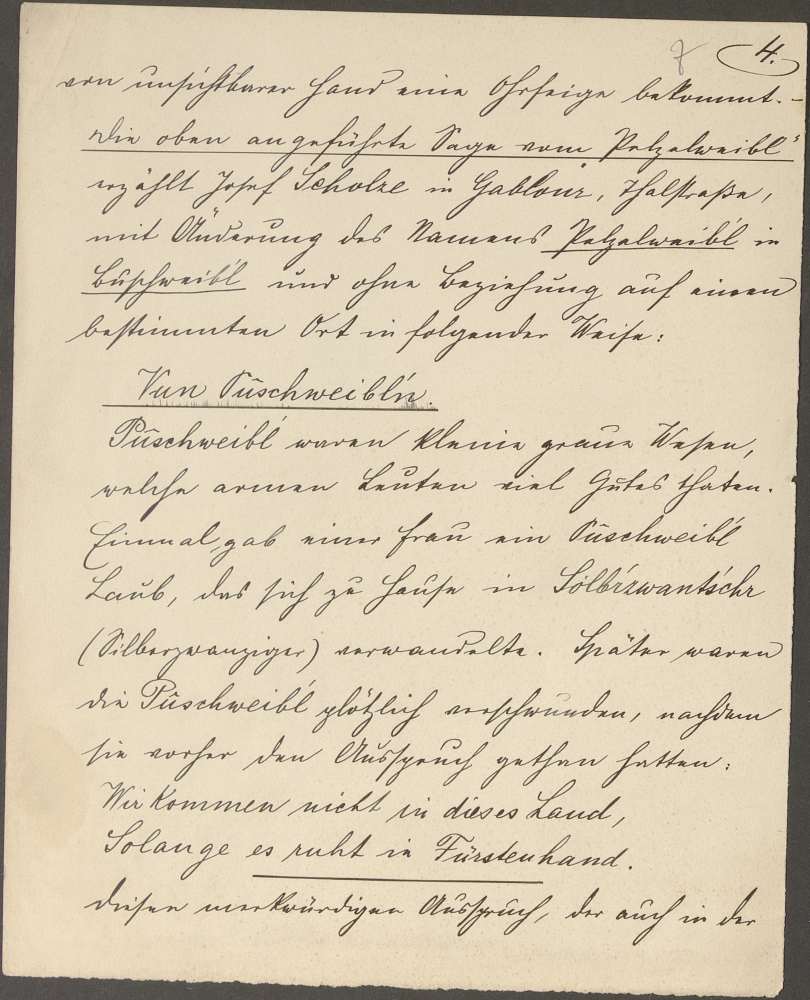 7 4.
von unsichtbarer Hand eine Ohrfeige bekommt. –
Die oben angeführte Sage vom Pelzalweibl'
erzählt Josef Scholze in Gablonz, Thalstraße,
mit Änderung des Namens Pelzalweib'l in
Buschweib'l und ohne Beziehung auf einen
bestimmten Ort in folgender Weise:
Vun Pûschweibl'n.
Pûschweibl' waren kleine graue Wesen,
welche armen Leuten viel Gutes thaten.
Einmal gab einer Frau ein Pûschweibl'
Laub, das sich zu Hause in Sölbrzwants'chr
(Silberzwanziger) verwandelte. Später waren
die Pûschweibl' plötzlich verschwunden, nachdem
sie vorher den Ausspruch gethan hatten:
Wir kommen nicht in dieses Land,
Solange es ruht in Fürstenhand.
Diesen merkwürdigen Ausspruch, der auch in der